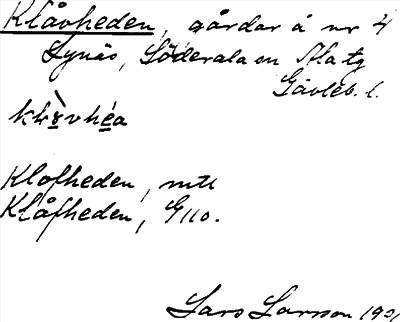 Klåvheden, gårdar å nr 4
Lynäs, Söderala sn Ala tg
Gävleb. l.
Klofheden, mtl
Klåfheden, G110.
Lars Larsson 1921